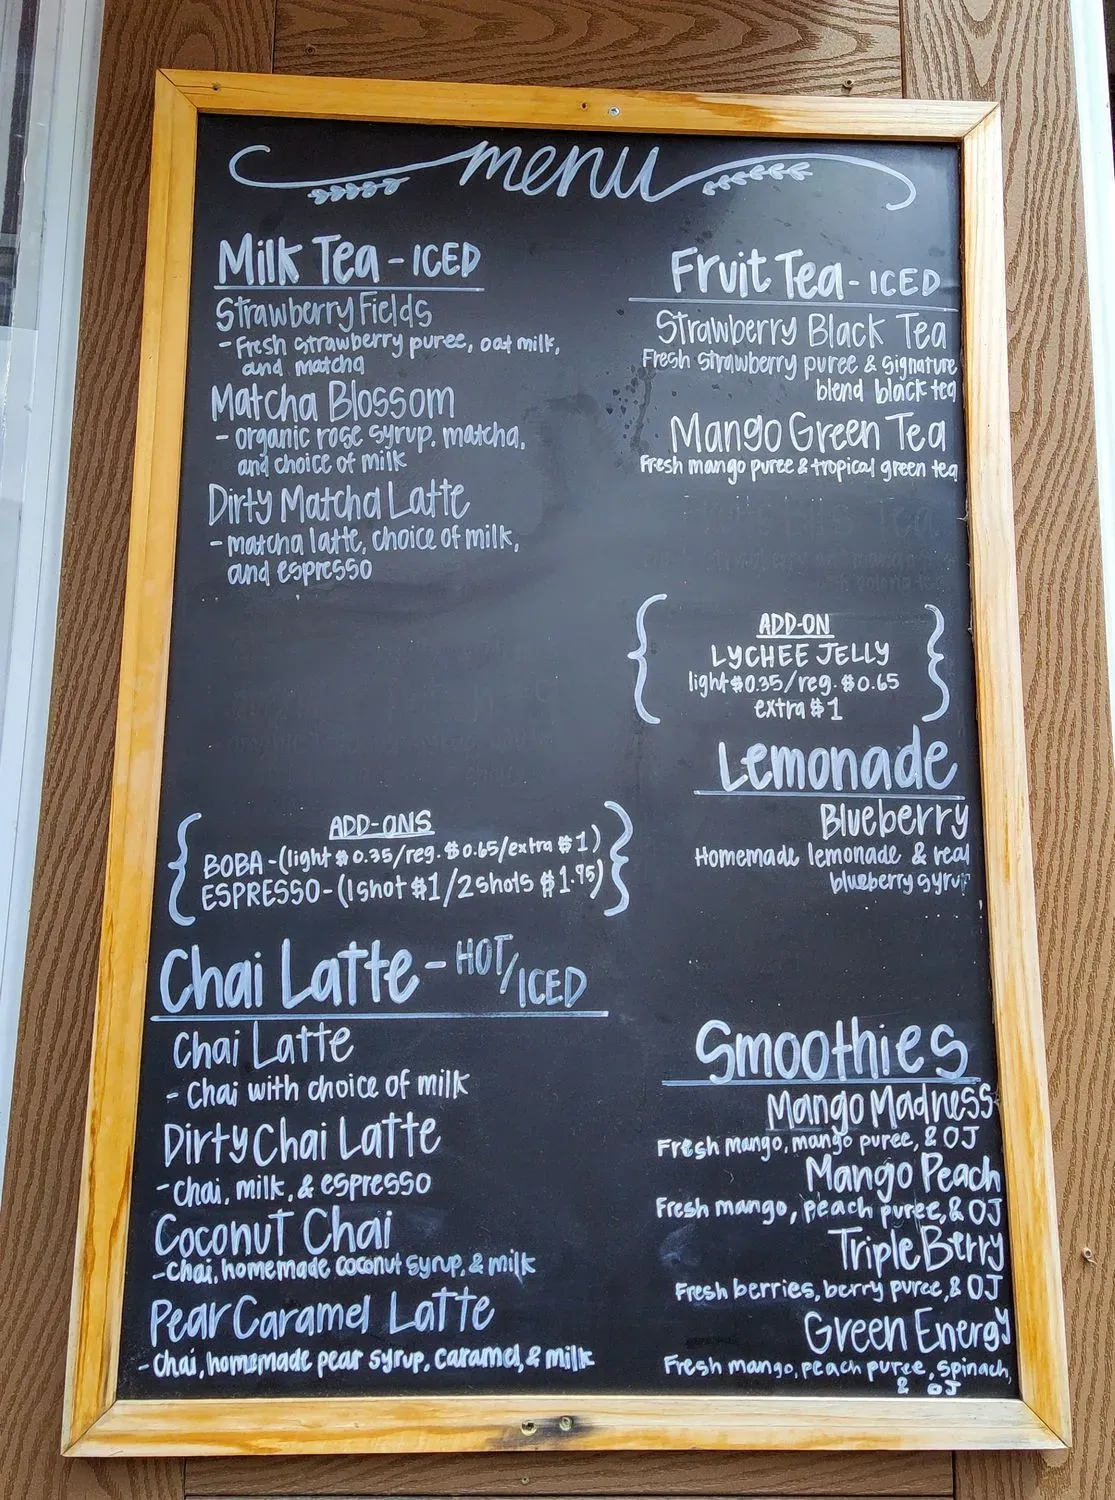 menu
Milk Tea - ICED
Strawberry Fields
- Fresh strawberry puree, oat milk,
and matcha
Matcha Blossom
- organic rose syrup, matcha,
and choice of milk
Dirty Matcha Latte
- matcha latte, choice of milk,
and espresso
ADD-ONS
BOBA - (light $0.35/reg. $0.65/extra $1)
ESPRESSO - (1 shot $1/2 shots $1.95)
Chai Latte - HOT/ICED
Chai Latte
- Chai with choice of milk
Dirty Chai Latte
- Chai, milk, & espresso
Coconut Chai
- Chai, homemade coconut syrup, & milk
Pear Caramel Latte
- Chai, homemade pear syrup, caramel, & milk
Fruit Tea - ICED
Strawberry Black Tea
Fresh strawberry puree & signature
blend black tea
Mango Green Tea
Fresh mango puree & tropical green tea
ADD-ON
LYCHEE JELLY
light $0.35/reg. $0.65
extra $1
Lemonade
Blueberry
Homemade lemonade & real
blueberry syrup
Smoothies
Mango Madness
Fresh mango, mango puree, & OJ
Mango Peach
Fresh mango, peach puree, & OJ
Triple Berry
Fresh berries, berry puree, & OJ
Green Energy
Fresh mango, peach puree, spinach,
& OJ